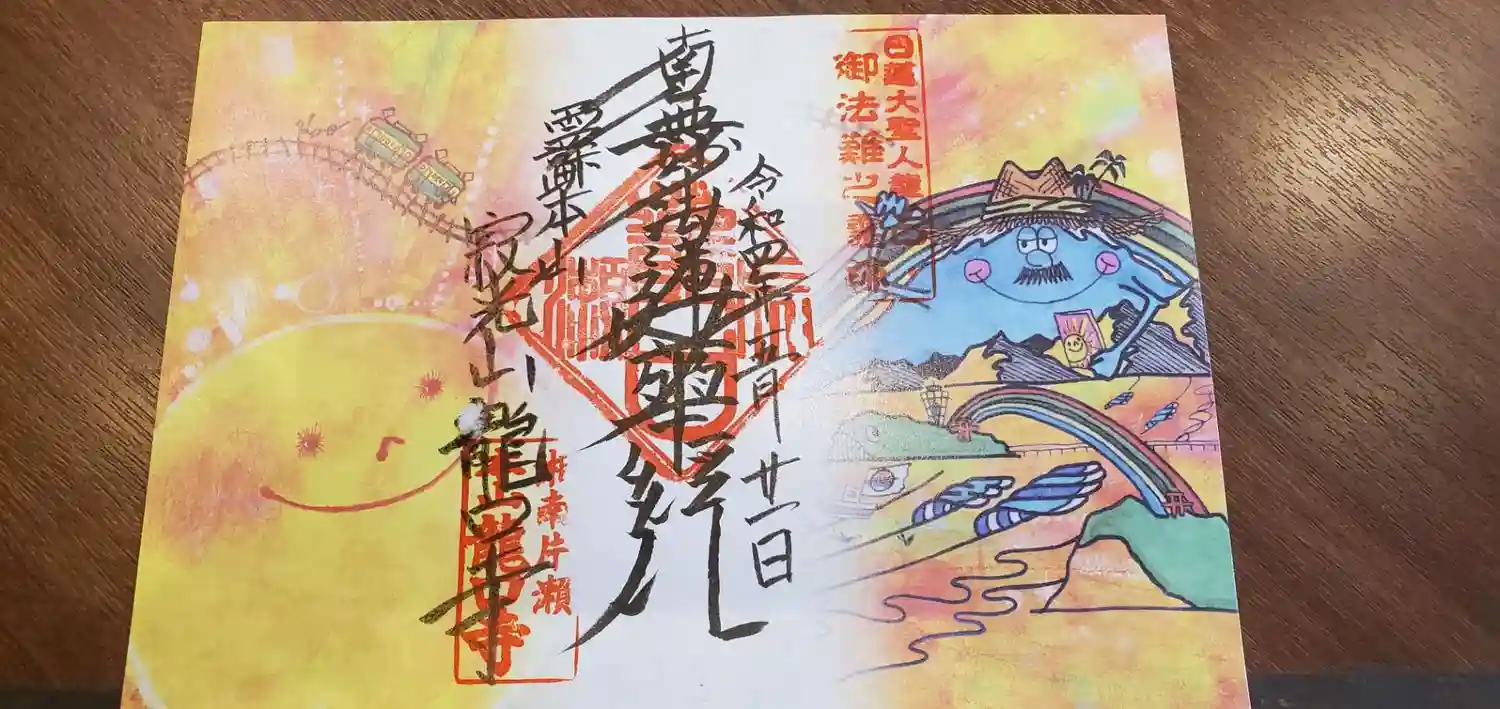 日蓮大聖人龍口
御法難之霊
令和四年五月廿一日
南無妙法蓮華経
霊跡本山
寂光山龍口寺
湘南片瀬
龍口寺